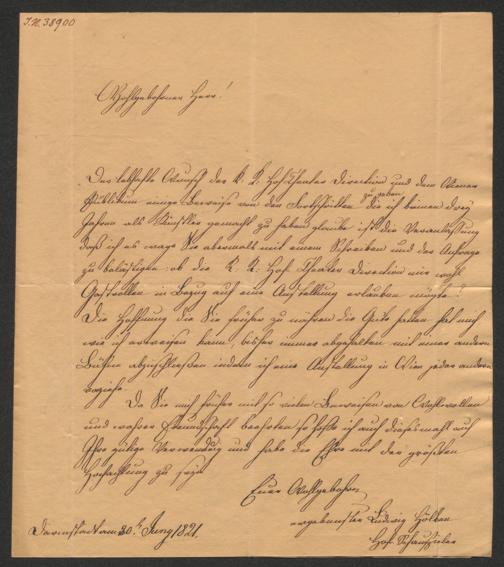 I.N. 38900
Wohlgebohrner Herr!
Der lebhafte Wunsch der K. K. Hof Theater Direction und dem Wiener
Publikum einige Beweise von den Fortschritten zu geben die ich binnen drey
Jahren als Künstler gemacht zu haben glaube ist die Veranlassung
daß ich es wage Sie abermals mit einem Schreiben und der Anfrage
zu belästigen: ob die K. K. Hof Theater Direction mir wohl
Gastrollen in Bezug auf eine Anstellung erlauben mögte?
Die Hoffnung die Sie früher zu nähren die Güte hatten hat mich
wie ich beweisen kann bisher immer abgehalten mit einer andern
Bühne abzuschließen indem ich eine Anstellung in Wien jeder andern
vorziehe
Da Sie mich früher mit so vielen Beweisen von Wohlwollen
und wahrer Freundschaft beehrten so hoffe ich auch diesesmahl auf
Ihre gütige Verwendung und habe die Ehre mit der größten
Hochachtung zu seyn
Euer Wohlgebohrn
ergebenster Ludwig Hölken
Hof Schauspieler
Darmstadt am 20. Juny 1821.